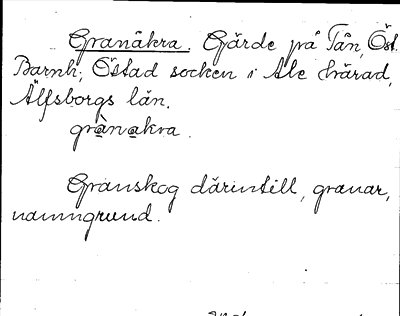 Granåkra. Gärde på Tån, Öst.
Barnh., Östad socken i Ale härad,
Älfsborgs län.
grànakra.
Granskog därintill, granar,
namngrund.